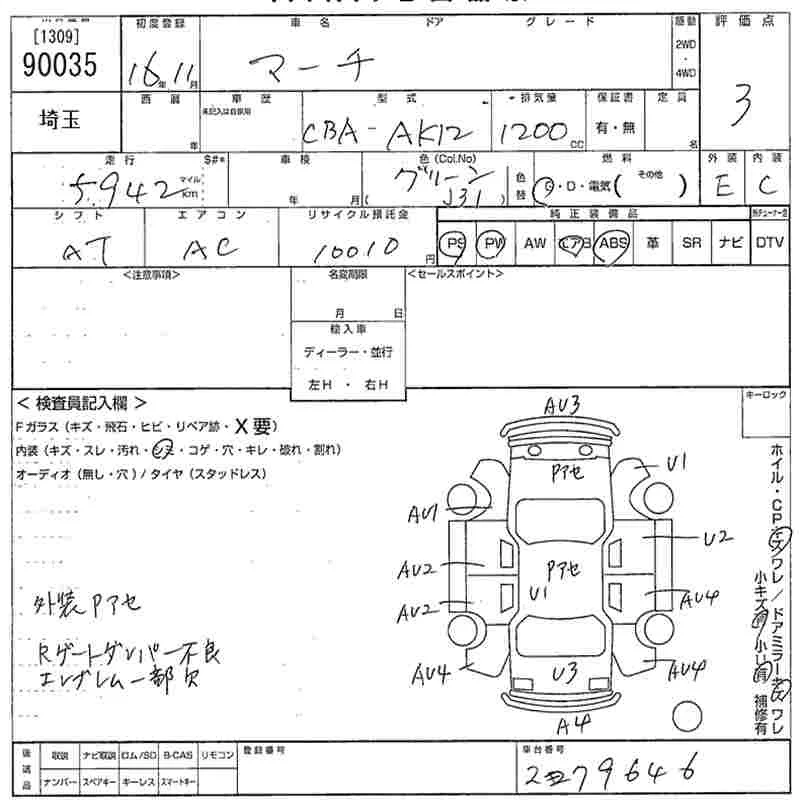 [1309]
90035
埼玉
初度登録
16年11月
車名 ドア グレード
マーチ
駆動
2WD
・
4WD
評価点
3
西暦
年
車歴
未記入は自家用
型式
CBA-AK12
排気量
1200cc
保証書
有・無
定員
名
走行 $#*
5942
マイル
km
車検
年 月(
色(Col.No)
グリーン
J31 )
色替
燃料
G・D・電気( その他 )
外装
E
内装
C
シフト
AT
エアコン
AC
リサイクル預託金
10010円
純正装備品
PS PW AW エアB ABS 革 SR ナビ DTV
<注意事項>
名変期限
月 日
輸入車
ディーラー・並行
左H・右H
<セールスポイント>
<検査員記入欄>
Fガラス(キズ・飛石・ヒビ・リペア跡・X要)
内装(キズ・スレ・汚れ・シミ・コゲ・穴・キレ・破れ・割れ)
オーディオ(無し・穴)/タイヤ(スタッドレス)
外装Pアセ
Rゲートダンパー不良
エンブレム一部欠
キーロック
AU3
Pアセ
U1
AU1
U2
AU2
Pアセ
U1
AU2
AU4
AU4
U3
AU4
A4
ホイル・CP・キズ/ワレ/ドアミラーキズ/ワレ
小キズ有 小U有 補修有
後送品
取説 ナビ取説 ロム/SD B-CAS リモコン
ナンバー スペアキー キーレス スマートキー
登録番号
車台番号
279646